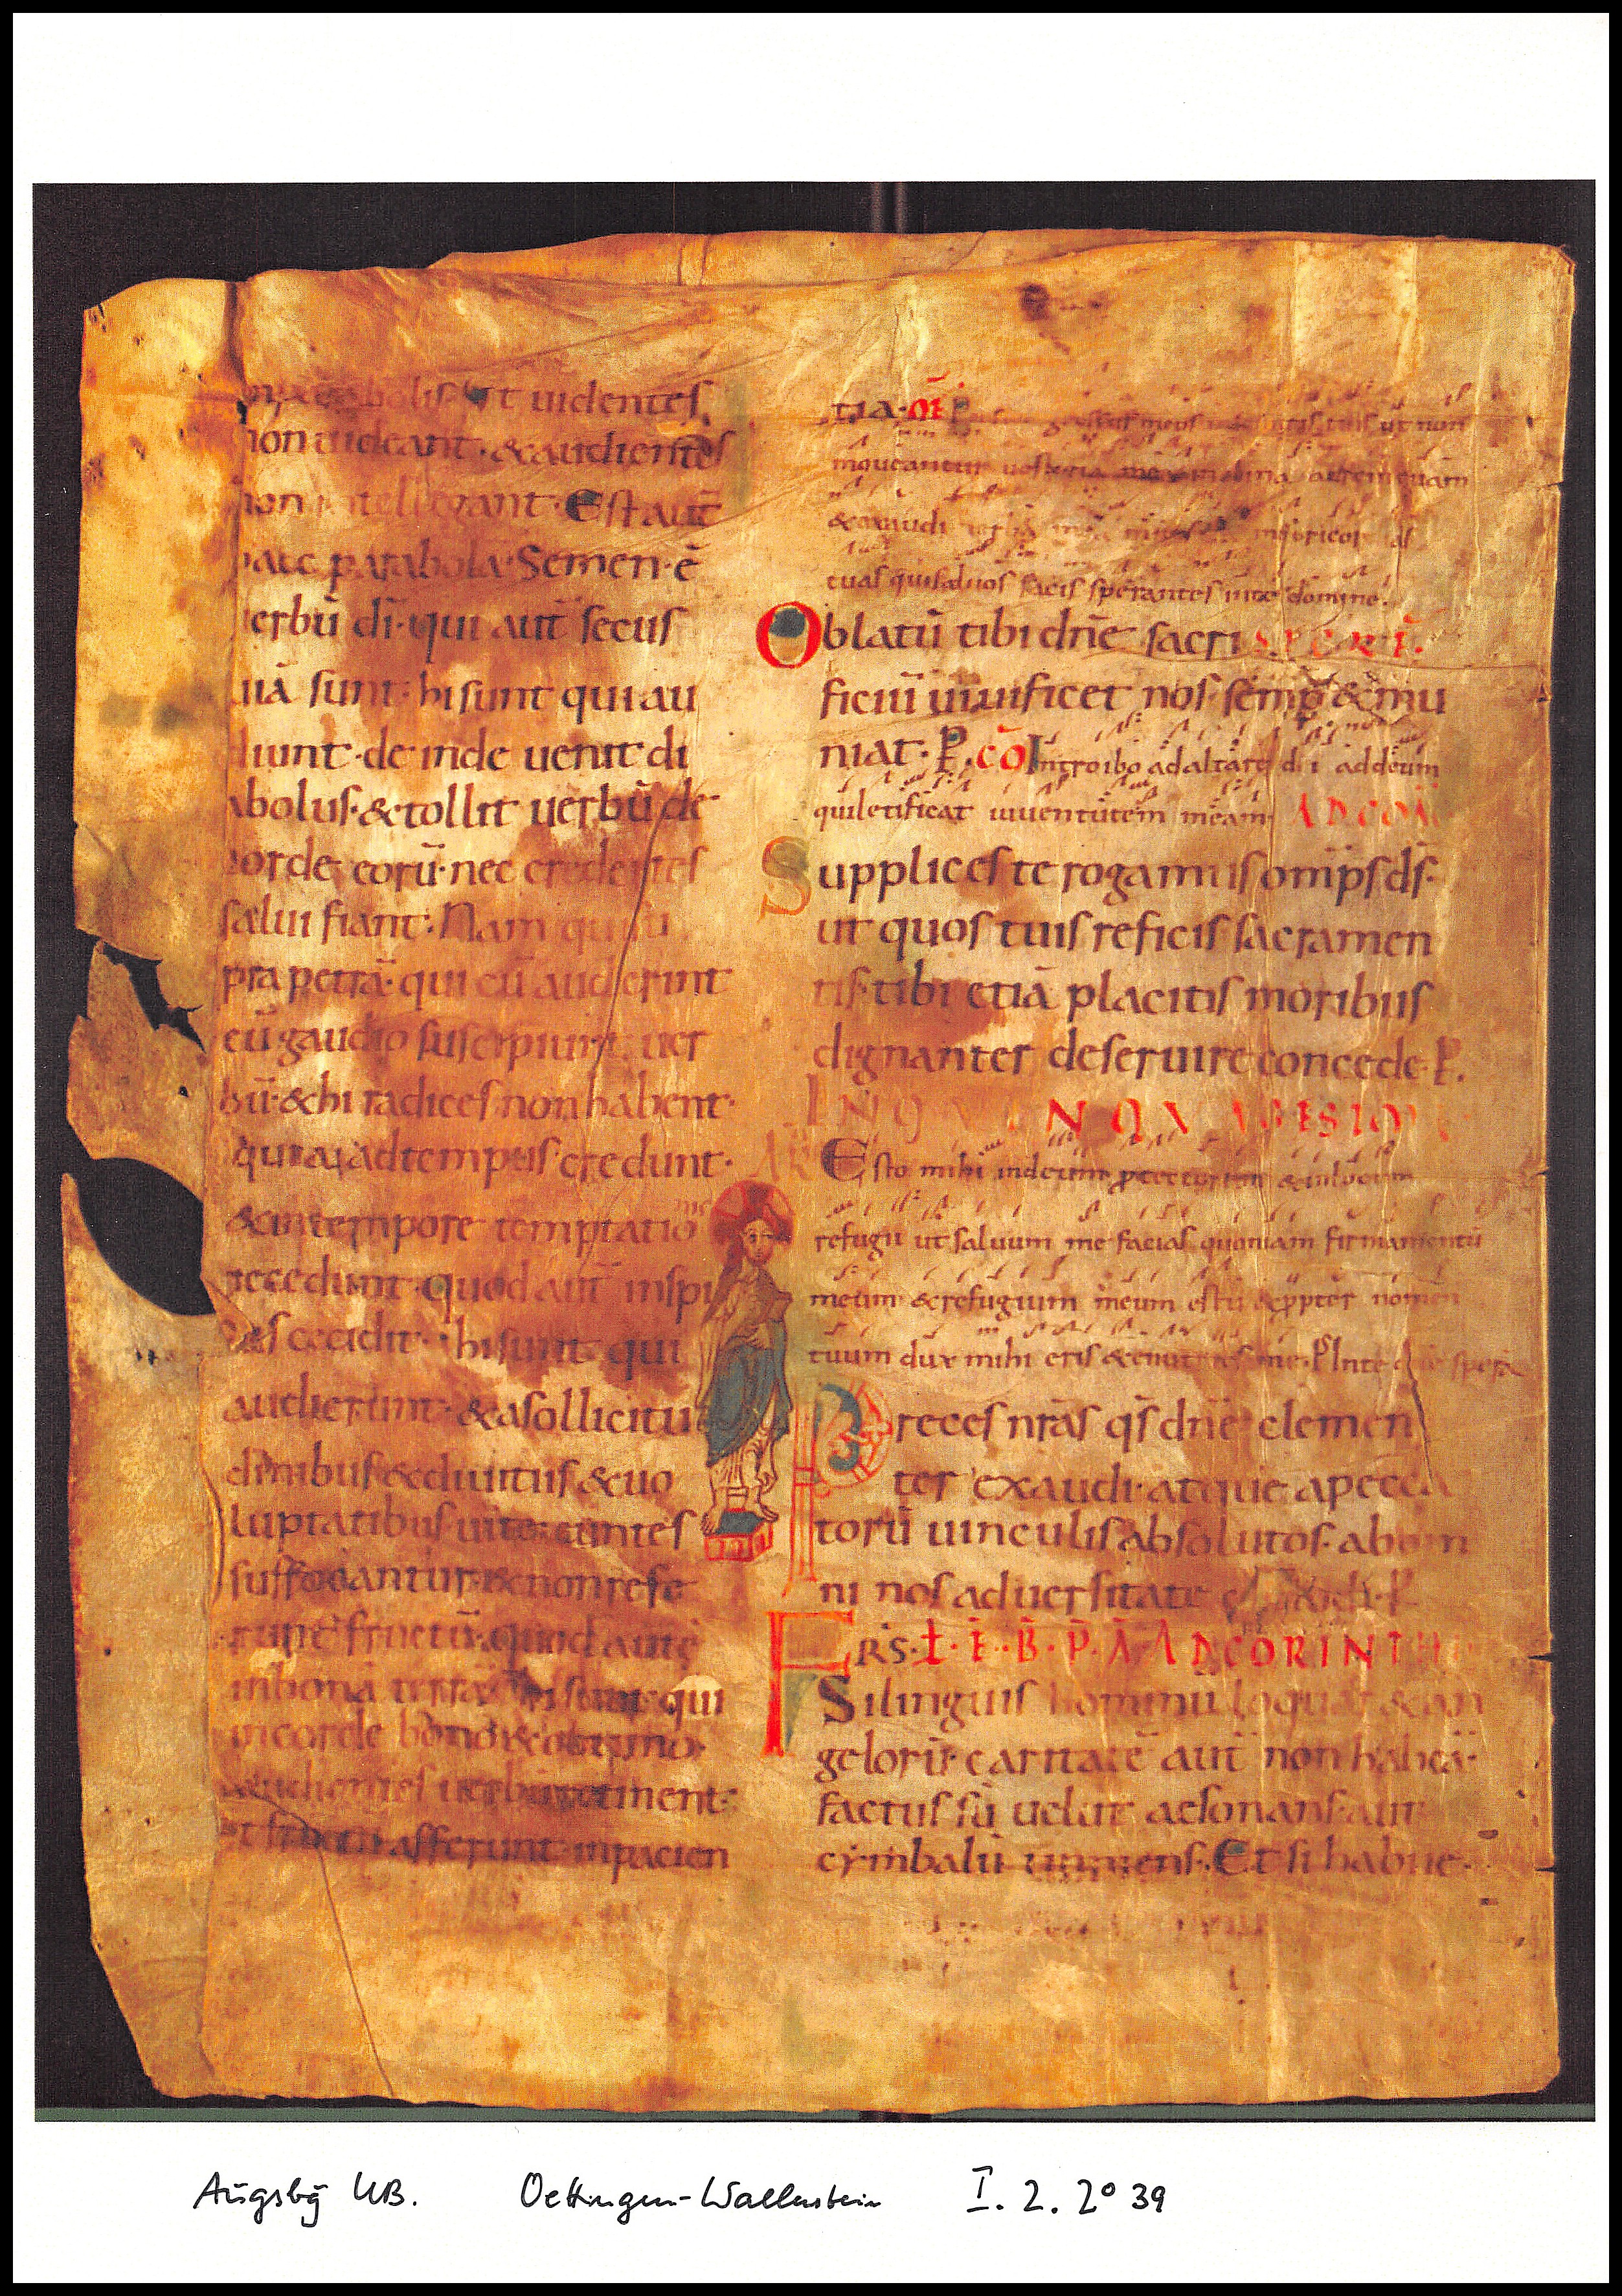 non uideant · & audientes
non intellegant · Est aut̄
haec parabola · Semen · ē
uerbū dī · qui aut̄ secus
uiā sunt · hi sunt qui au
diunt · de inde uenit di
abolus · & tollit uerbū de
corde eorū · nec credentes
salui fiant · Nam qui su
pra petrā · qui cū audierint
cū gaudio suscipiunt uer
bū · & hi radices non habent ·
quia ad tempus credunt ·
& in tempore temptatio
nis
recedunt · quod aut̄ in spi
nas cecidit · hi sunt qui
audierunt · & a sollicitu
dinibus & diuitiis & uo
luptatibus uitę euntes
suffocantur & non refe
runt fructū · quod aut̄
in bonā terrā · hi sunt qui
in corde bono & optimo
audientes uerbū retinent ·
et fructū afferunt in pacien
tia · OF̄ P gressus meos in semitis tuis ut non
moueantur uestigia mea inclina aurem tuam
& exaudi uerba mea misericordias
tuas qui saluos facis sperantes in te domine ·
Oblatū tibi dn̄e sacri SECRĒ ·
ficiū uiuificet nos semp̄ & mu
niat · P . CŌ Introibo ad altare di ad deum
qui letificat iuuentutem meam AD COM
Supplices te rogamus omīps ds̄ ·
ut quos tuis reficis sacramen
tis · tibi etiā placitis moribus
dignanter deseruire concede · P .
IN QUINQUAGESIM
AN̄ Esto mihi in deum protectorem & in locum
refugii ut saluum me facias quoniam firmamentū
meum & refugium meum es tu & ꝓpter nomen
tuum dux mihi eris & enutries me · P̄ In te dn̄e spera
Preces nr̄as qs̄ dn̄e clemen
ter exaudi · atque a pecca
torū uinculis absolutos · ab om
ni nos aduersitate · P
FRS · Ł · E · B · P · A · AD CORINTH
Si linguis hominū loquar & an
gelorū · caritatē aut̄ non habeā ·
factus sū uelut aes sonans · aut
cymbalū tinniens · Et si habue ·
Augsbg UB. Oettingen-Wallerstein I. 2. 2° 39